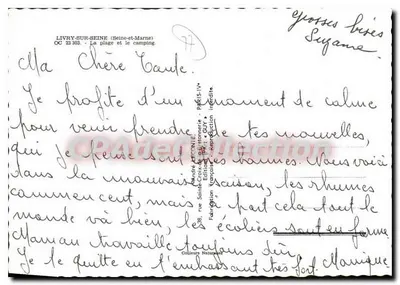 LIVRY-SUR-SEINE (Seine-et-Marne)
OC 23 303. - La plage et le camping
77
grosses bises
Suzanne
Ma Chère Tante.
Je profite d'un moment de calme
pour venir prendre de tes nouvelles,
qui je pense sont très bonnes. Nous voici
dans la mauvaise saison, les rhumes
commencent, mais à part cela tout le
monde va bien, les écoliers sont en forme
Maman travaille toujours dur,
Je te quitte en t'embrassant très fort. Monique